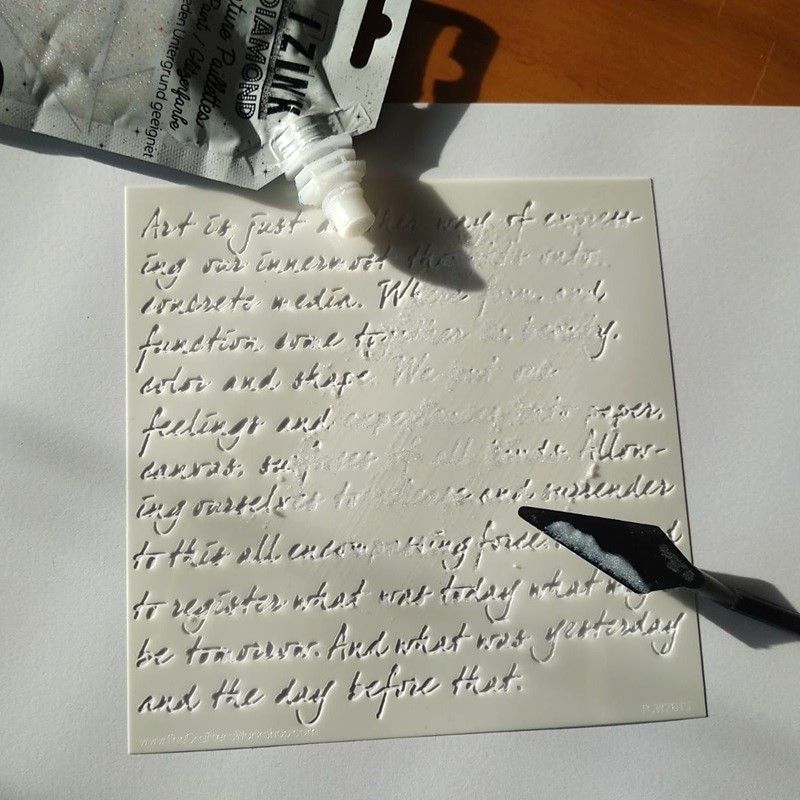 IZINK
DIAMOND
Paillettes
Paint / Glitzerfarbe
jeden Untergrund geeignet
Art is just another way of express-
ing our innermost thoughts onto
concrete media. Where form and
function come together in beauty,
color and shape. We put our
feelings and experiences into paper,
canvas, surfaces of all kinds. Allow-
ing ourselves to release and surrender
to this all encompassing force.
to register what was today what my
be tomorrow. And what was yesterday
and the day before that.
www.TheCraftersWorkshop.com